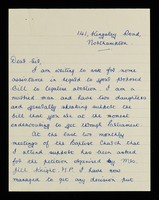 141, Kingsley Road,
Northampton
Dear Sir,
I am writing to ask for some
assistance in regard to your proposed
Bill to legalise abortion. I am a
married man and have two daughters
and generally speaking support the
bill that you are at the moment
endeavouring to get through Parliament.
At the last two monthly
meetings of the Baptist Church that
I attend support has been asked
for the petition organised by Mrs.
Jill Knight. M.P. I have now
managed to get my decision put